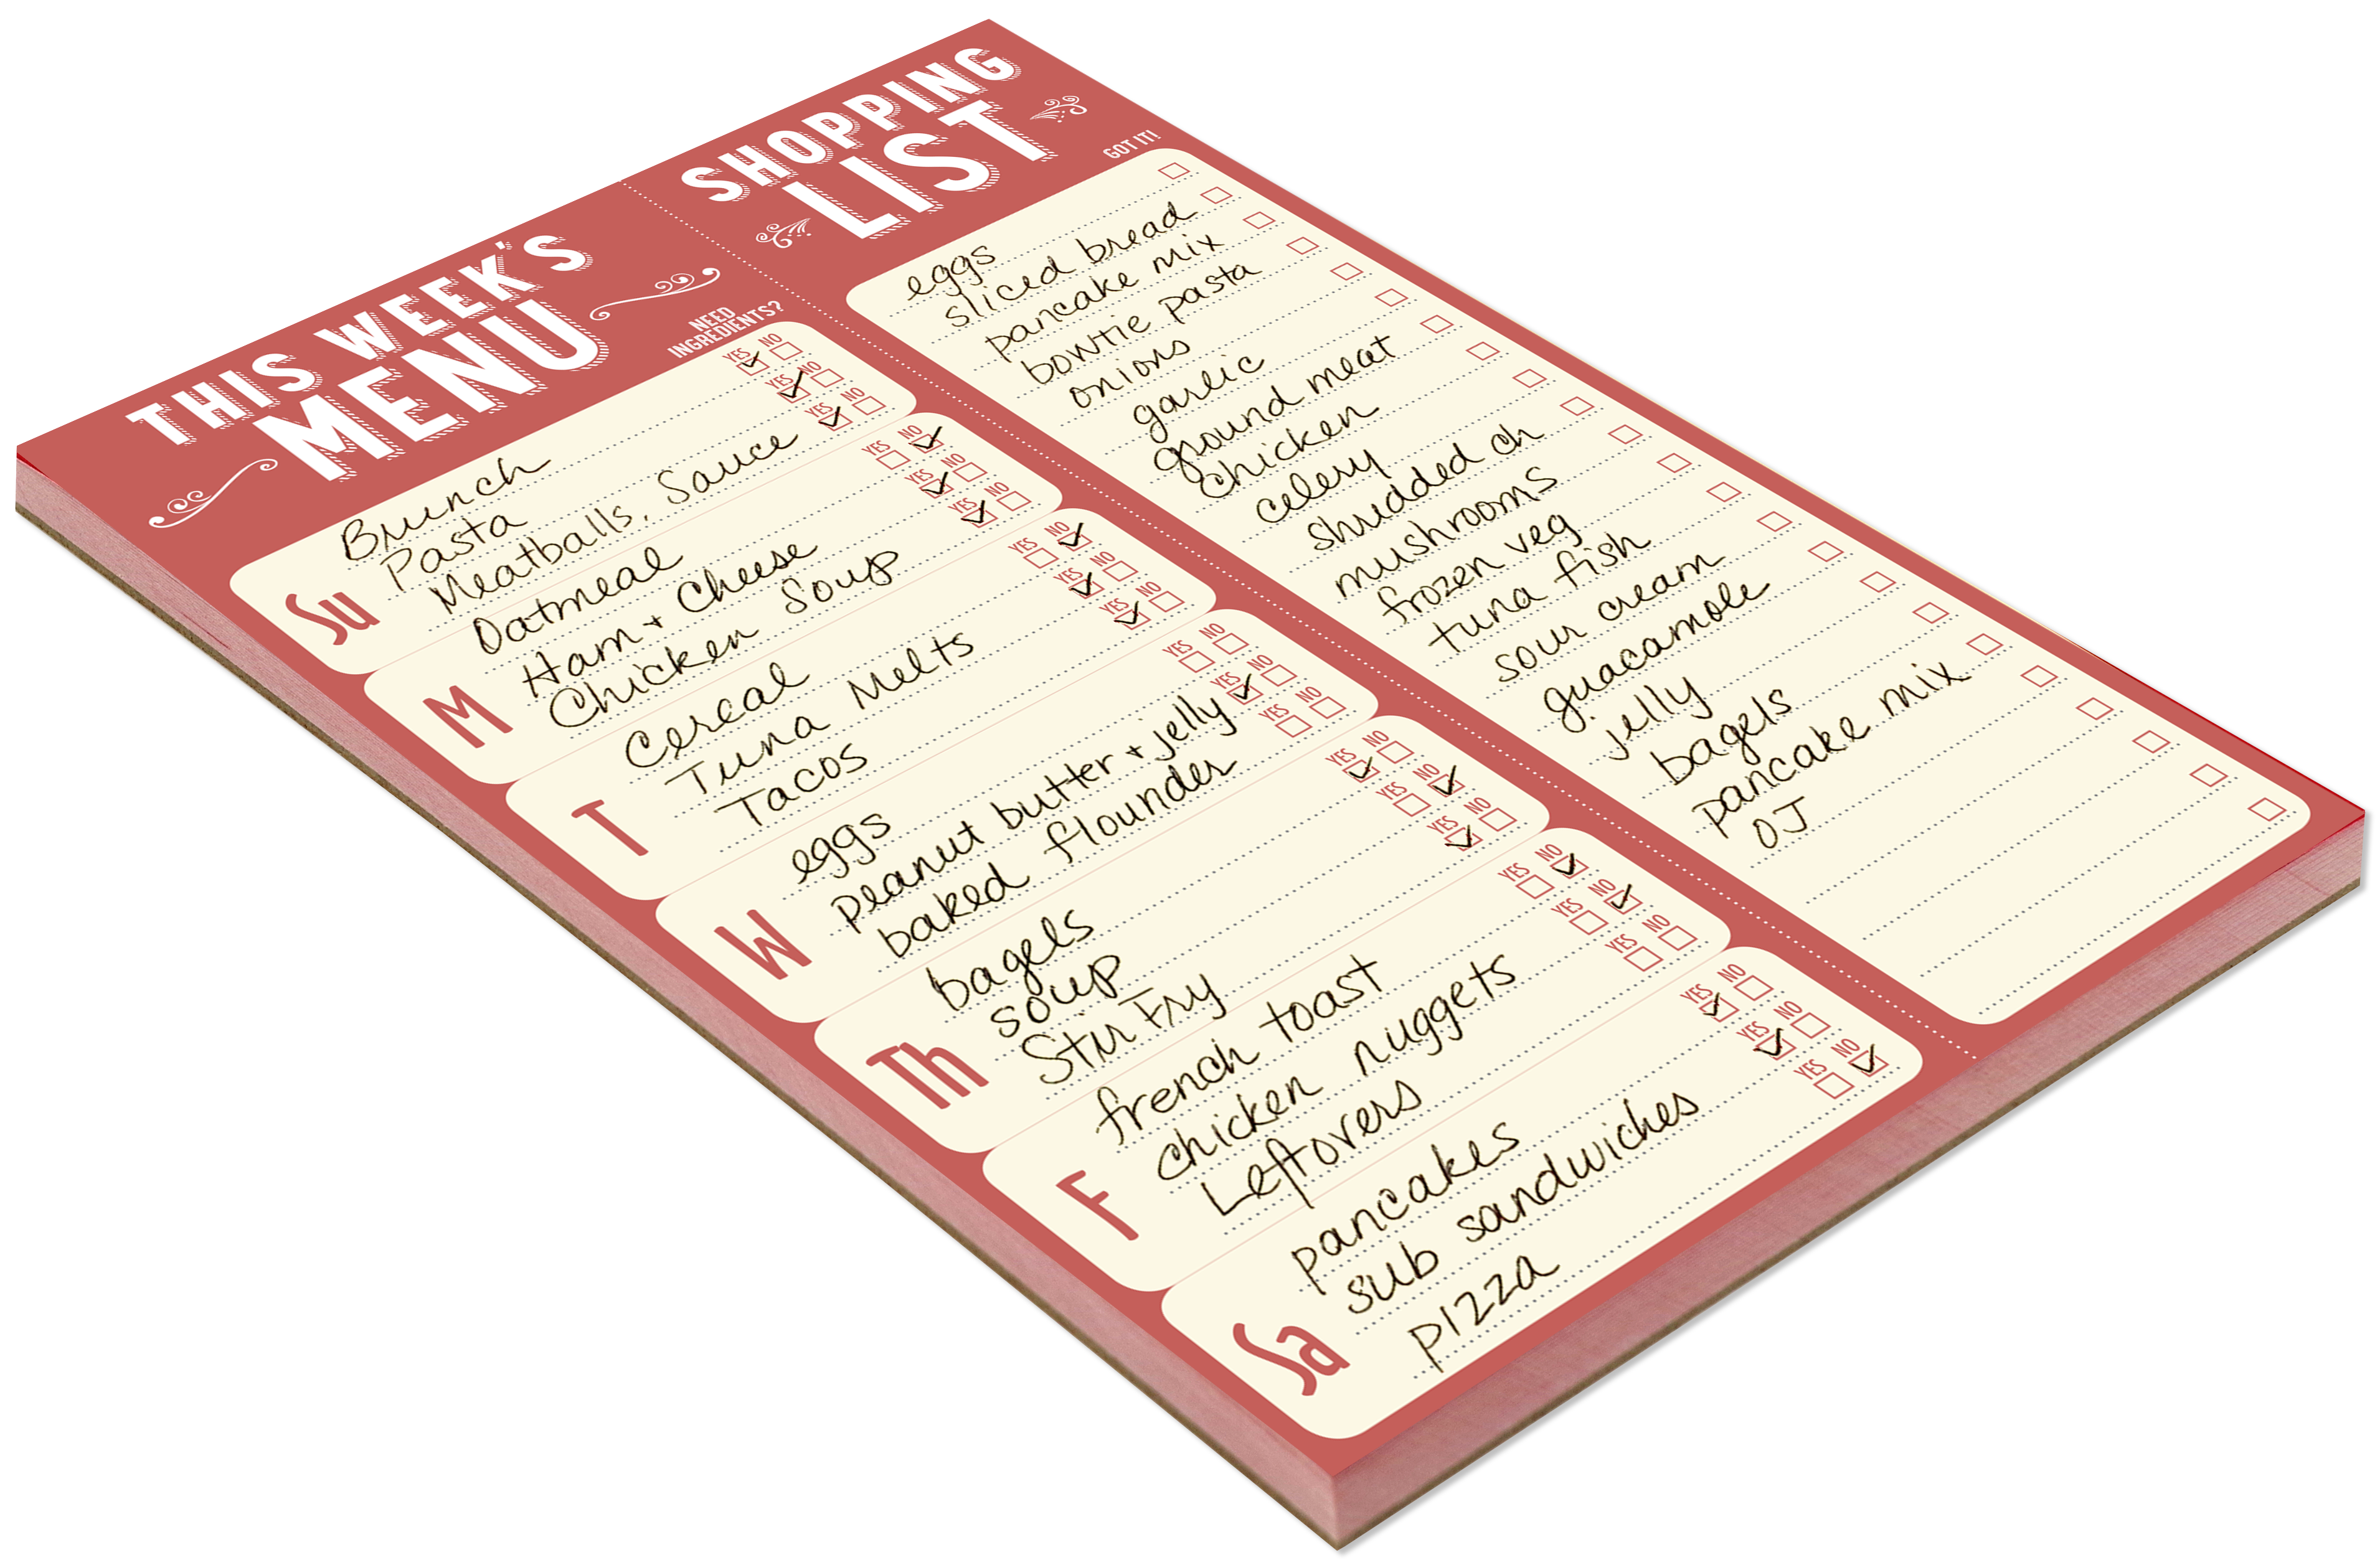 THIS WEEK'S
MENU
NEED
INGREDIENTS?
Su
Brunch YES NO
Pasta YES NO
Meatballs, Sauce YES NO
M
Oatmeal YES NO
Ham + Cheese YES NO
Chicken Soup YES NO
T
Cereal YES NO
Tuna Melts YES NO
Tacos YES NO
W
eggs YES NO
peanut butter + jelly YES NO
baked flounder YES NO
Th
bagels YES NO
soup YES NO
Stir Fry YES NO
F
french toast YES NO
chicken nuggets YES NO
Leftovers YES NO
Sa
pancakes YES NO
sub sandwiches YES NO
pizza YES NO
SHOPPING
LIST
GOT IT!
eggs
sliced bread
pancake mix
bowtie pasta
onions
garlic
ground meat
Chicken
celery
shredded ch
mushrooms
frozen veg
tuna fish
sour cream
guacamole
jelly
bagels
pancake mix
OJ